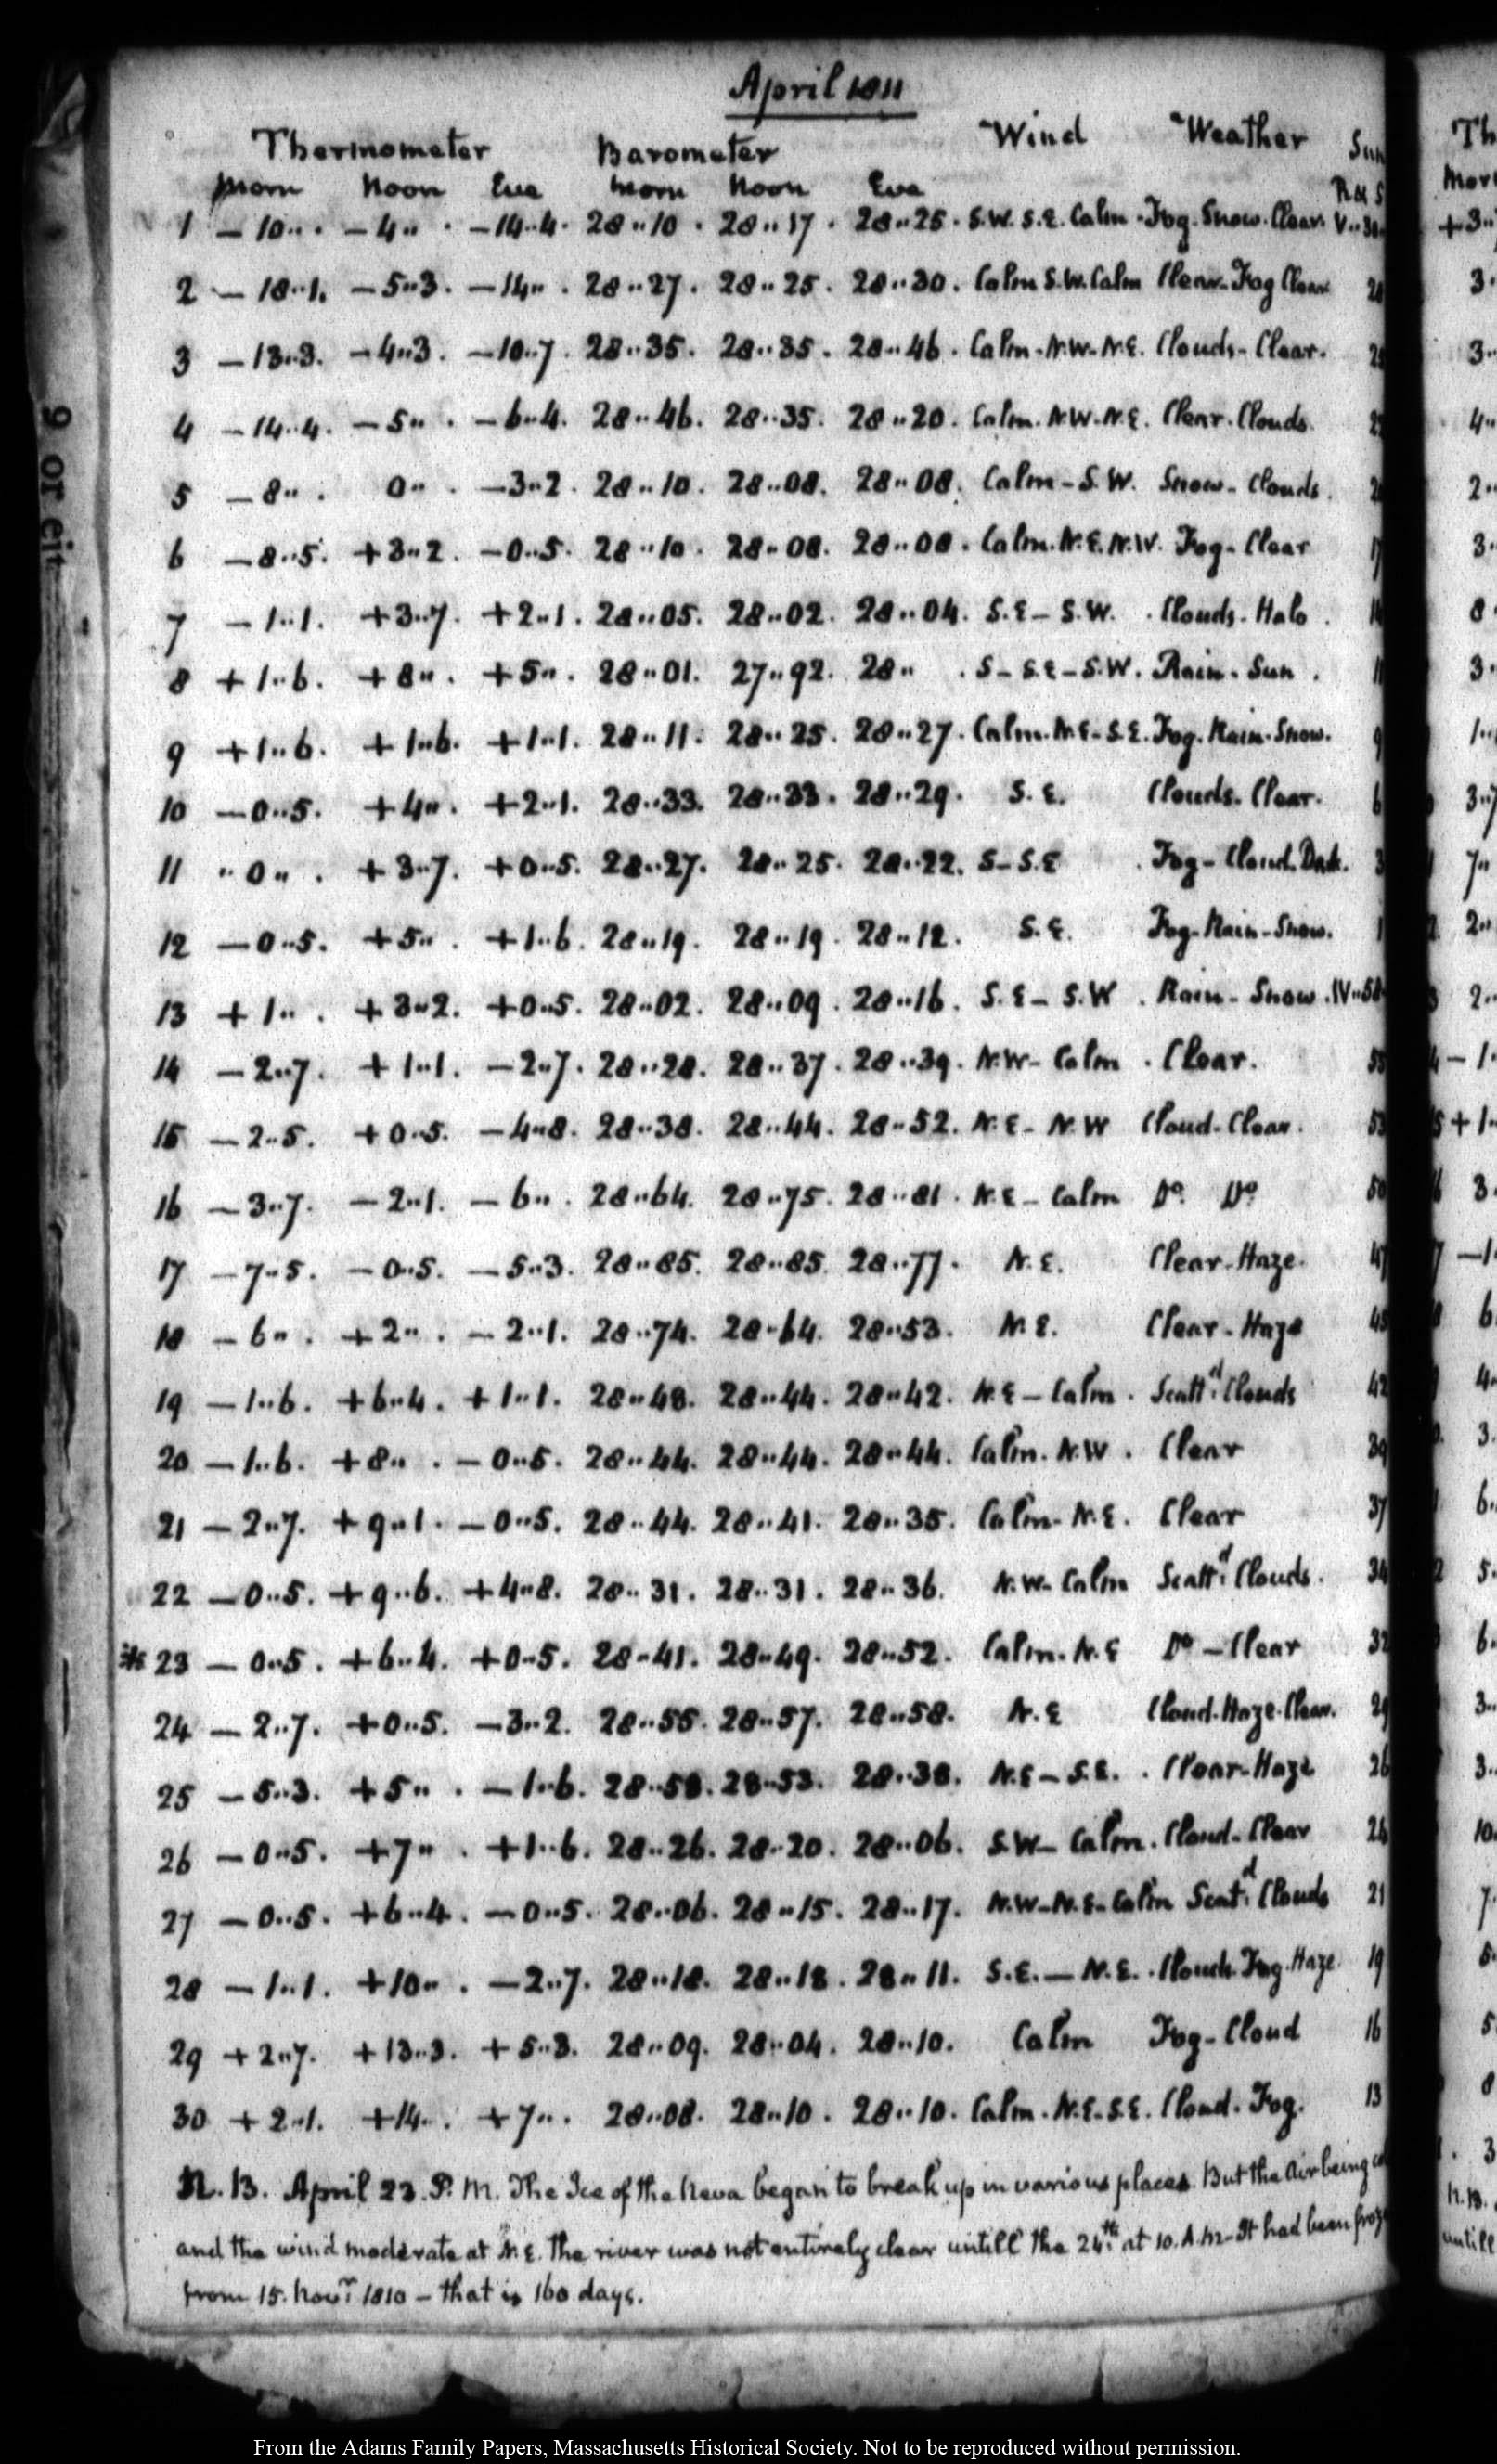 April 1811
Thermometer Barometer Wind Weather Sun
Morn Noon Eve Morn Noon Eve R & S
1 — 10.. . — 4.. . — 14..4. 28..10 . 28..17 . 28..25 . S.W. S.E. Calm . Fog. Snow. Clear. V..30
2 — 18..1. — 5..3. — 14.. . 28..27. 28..25. 28..30. Calm S.W. Calm Clear. Fog Clear
3 — 13..3. — 4..3. — 10..7. 28..35. 28..35. 28..46. Calm - N.W. - N.E. Clouds - Clear.
4 — 14..4. — 5.. . — 6..4. 28..46. 28..35. 28..20. Calm. N.W. - N.E. Clear. Clouds.
5 — 8.. . 0.. . — 3..2. 28..10. 28..08. 28..08. Calm - S.W. Snow - Clouds.
6 — 8..5. + 3..2. — 0..5. 28..10. 28..08. 28..08. Calm. N.E. N.W. Fog - Clear
7 — 1..1. + 3..7. + 2..1. 28..05. 28..02. 28..04. S.E - S.W. . Clouds. Halo.
8 + 1..6. + 8.. . + 5.. . 28..01. 27..92. 28.. . S - S.E - S.W. Rain. Sun. 11
9 + 1..6. + 1..6. + 1..1. 28..11. 28..25. 28..27. Calm. N.E - S.E. Fog. Rain. Snow. 9
10 — 0..5. + 4.. . + 2..1. 28..33. 28..33. 28..29. S.E. Clouds. Clear. 6
11 .. 0.. . + 3..7. + 0..5. 28..27. 28..25. 28..22. S - S.E . Fog - Cloud. Dark. 3
12 — 0..5. + 5.. . + 1..6. 28..19. 28..19. 28..12. S.E. Fog - Rain - Snow. 1
13 + 1.. . + 3..2. + 0..5. 28..02. 28..09. 28..16. S.E - S.W . Rain - Snow. IV..58
14 — 2..7. + 1..1. — 2..7. 28..28. 28..37. 28..39. N.W - Calm . Clear.
15 — 2..5. + 0..5. — 4..8. 28..38. 28..44. 28..52. N.E - N.W Cloud - Clear. 53
16 — 3..7. — 2..1. — 6.. . 28..64. 28..75. 28..81. N.E - Calm Do. Do 50
17 — 7..5. — 0..5. — 5..3. 28..85. 28..85. 28..77. N.E. Clear - Haze. 47
18 — 6.. . + 2.. . — 2..1. 28..74. 28..64. 28..53. N.E. Clear - Haze 45
19 — 1..6. + 6..4. + 1..1. 28..48. 28..44. 28..42. N.E - Calm . Scattd. Clouds 42
20 — 1..6. + 8.. . — 0..5. 28..44. 28..44. 28..44. Calm. N.W . Clear 39
21 — 2..7. + 9..1. — 0..5. 28..44. 28..41. 28..35. Calm - N.E. Clear 37
22 — 0..5. + 9..6. + 4..8. 28..31. 28..31. 28..36. N.W - Calm Scattd. Clouds. 34
23 — 0..5. + 6..4. + 0..5. 28..41. 28..49. 28..52. Calm. N.E Do - Clear 32
24 — 2..7. + 0..5. — 3..2. 28..55. 28..57. 28..58. N.E Cloud. Haze. Clear. 29
25 — 5..3. + 5.. . — 1..6. 28..58. 28..53. 28..38. N.E - S.E. . Clear - Haze 26
26 — 0..5. + 7.. . + 1..6. 28..26. 28..20. 28..06. S.W - Calm. Cloud - Clear 24
27 — 0..5. + 6..4. — 0..5. 28..06. 28..15. 28..17. N.W - N.E - Calm Scatd. Clouds 21
28 — 1..1. + 10.. . — 2..7. 28..18. 28..18. 28..11. S.E. — N.E. . Clouds. Fog. Haze 19
29 + 2..7. + 13..3. + 5..3. 28..09. 28..04. 28..10. Calm Fog - Cloud 16
30 + 2..1. + 14.. . + 7.. . 28..08. 28..10. 28..10. Calm. N.E. S.E. Cloud. Fog. 13
N.B. April 23. P.M. The Ice of the Neva began to break up in various places. But the Air being
and the wind moderate at N.E. the river was not entirely clear untill the 24th. at 10. A.M - It had been
from 15. Novr. 1810 - that is 160 days.
9 or eit
From the Adams Family Papers, Massachusetts Historical Society. Not to be reproduced without permission.